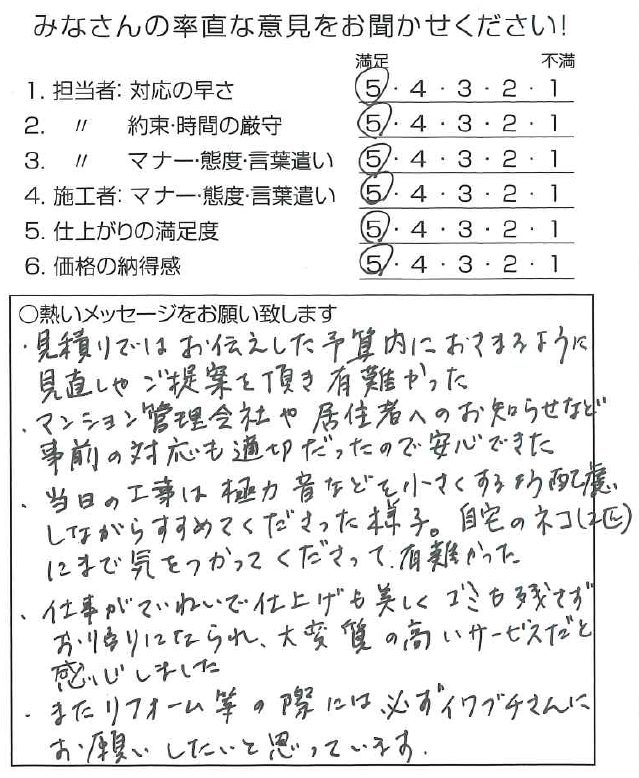 みなさんの率直な意見をお聞かせください!
満足 不満
1. 担当者: 対応の早さ 5・4・3・2・1
2. 〃 約束・時間の厳守 5・4・3・2・1
3. 〃 マナー・態度・言葉遣い 5・4・3・2・1
4. 施工者: マナー・態度・言葉遣い 5・4・3・2・1
5. 仕上がりの満足度 5・4・3・2・1
6. 価格の納得感 5・4・3・2・1
○熱いメッセージをお願い致します
・見積りではお伝えした予算内におさまるように
見直しやご提案を頂き有難かった
・マンション管理会社や居住者へのお知らせなど
事前の対応も適切だったので安心できた
・当日の工事は極力音などを小さくするよう配慮
しながらすすめてくださった様子。自宅のネコ(2匹)
にまで気をつかってくださって、有難かった
・仕事がていねいで仕上げも美しくゴミも残さず
お帰りになられ、大変質の高いサービスだと
感じしました
・またリフォーム等の際には、必ずイワブチさんに
お願いしたいと思っています.